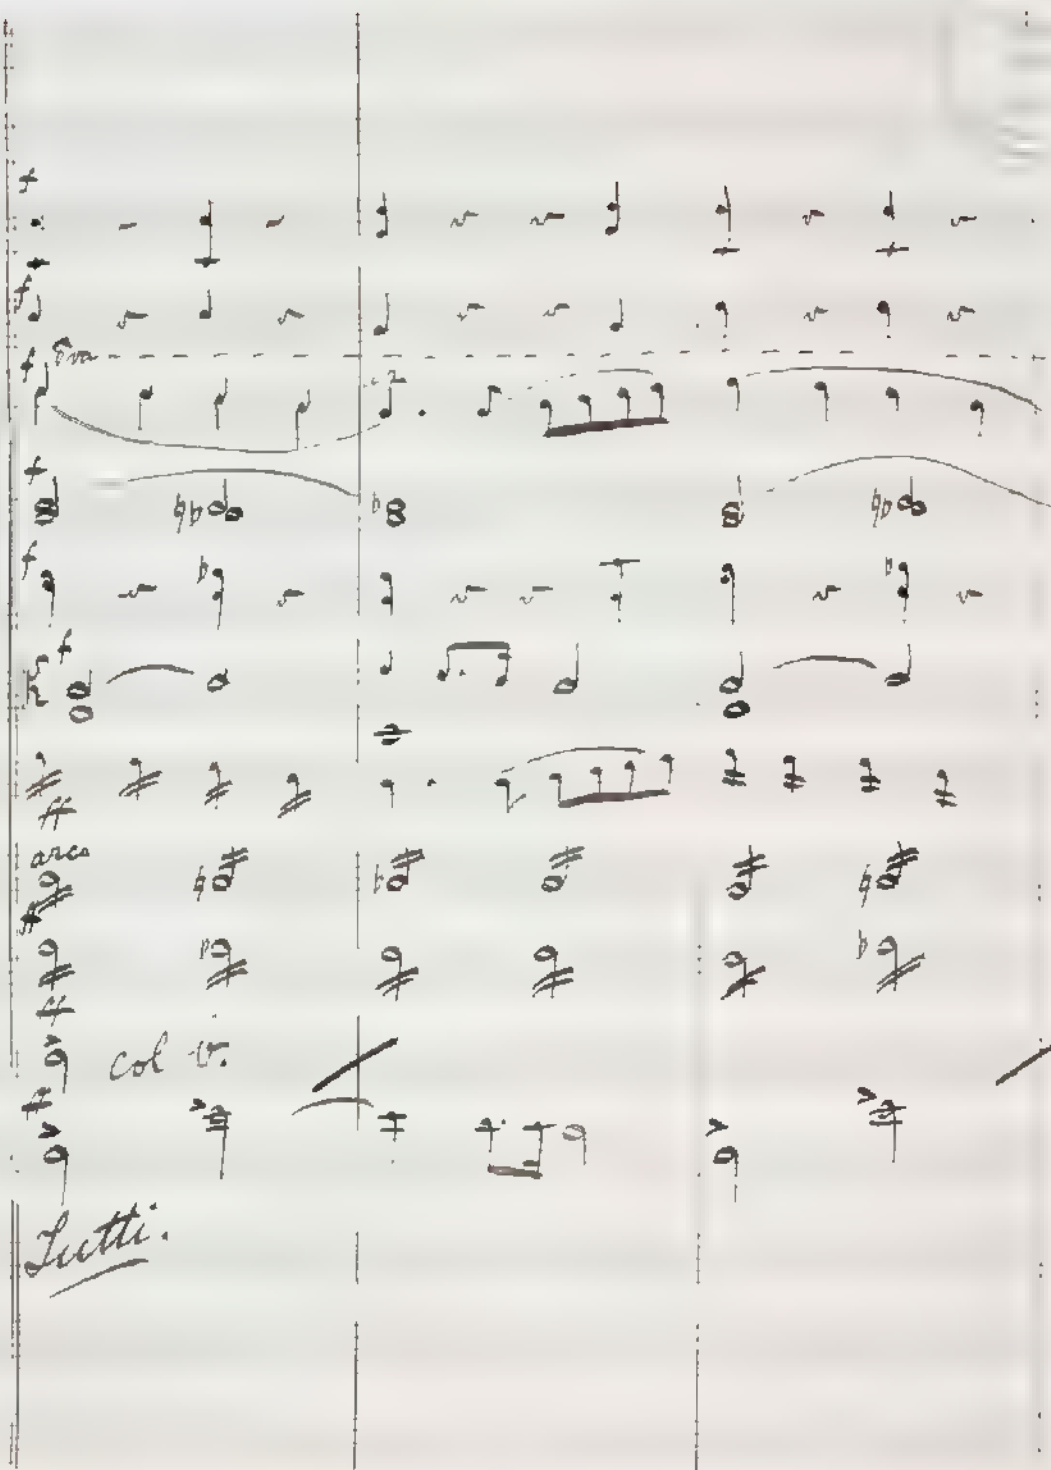 f
f
f 8va
f
f
f
ff
arco
ff
ff
col v.
ff
Tutti.